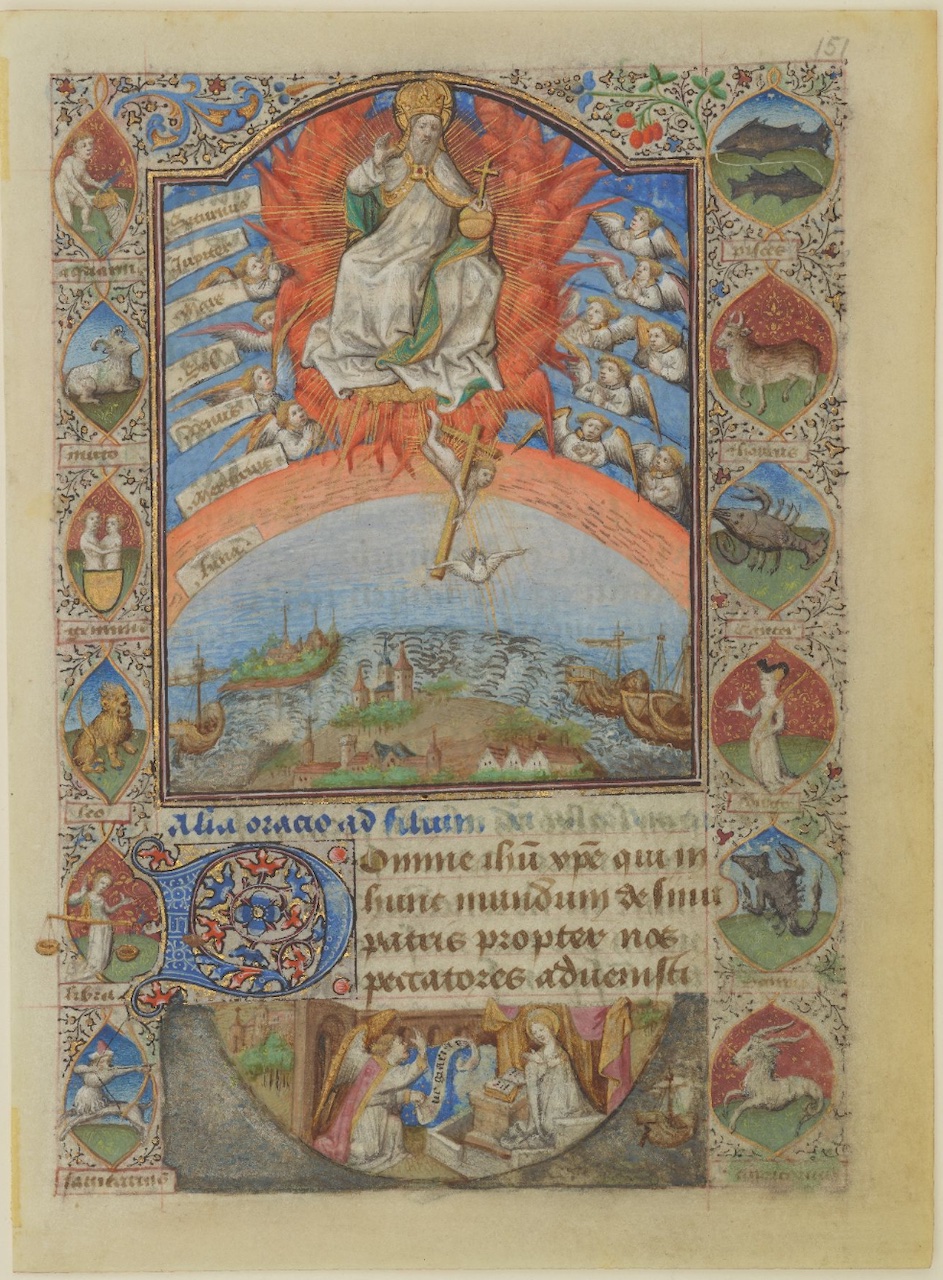 151
Saturnus
Jupiter
Mars
Sol
Venus
Mercurius
Luna
aquarius
pisces
thaurus
gemini
cancer
leo
virgo
libra
sagittarius
Alia oracio ad filium
Domine ihū xpē qui in
hunc mundum de sinu
patris propter nos
peccatores aduenisti